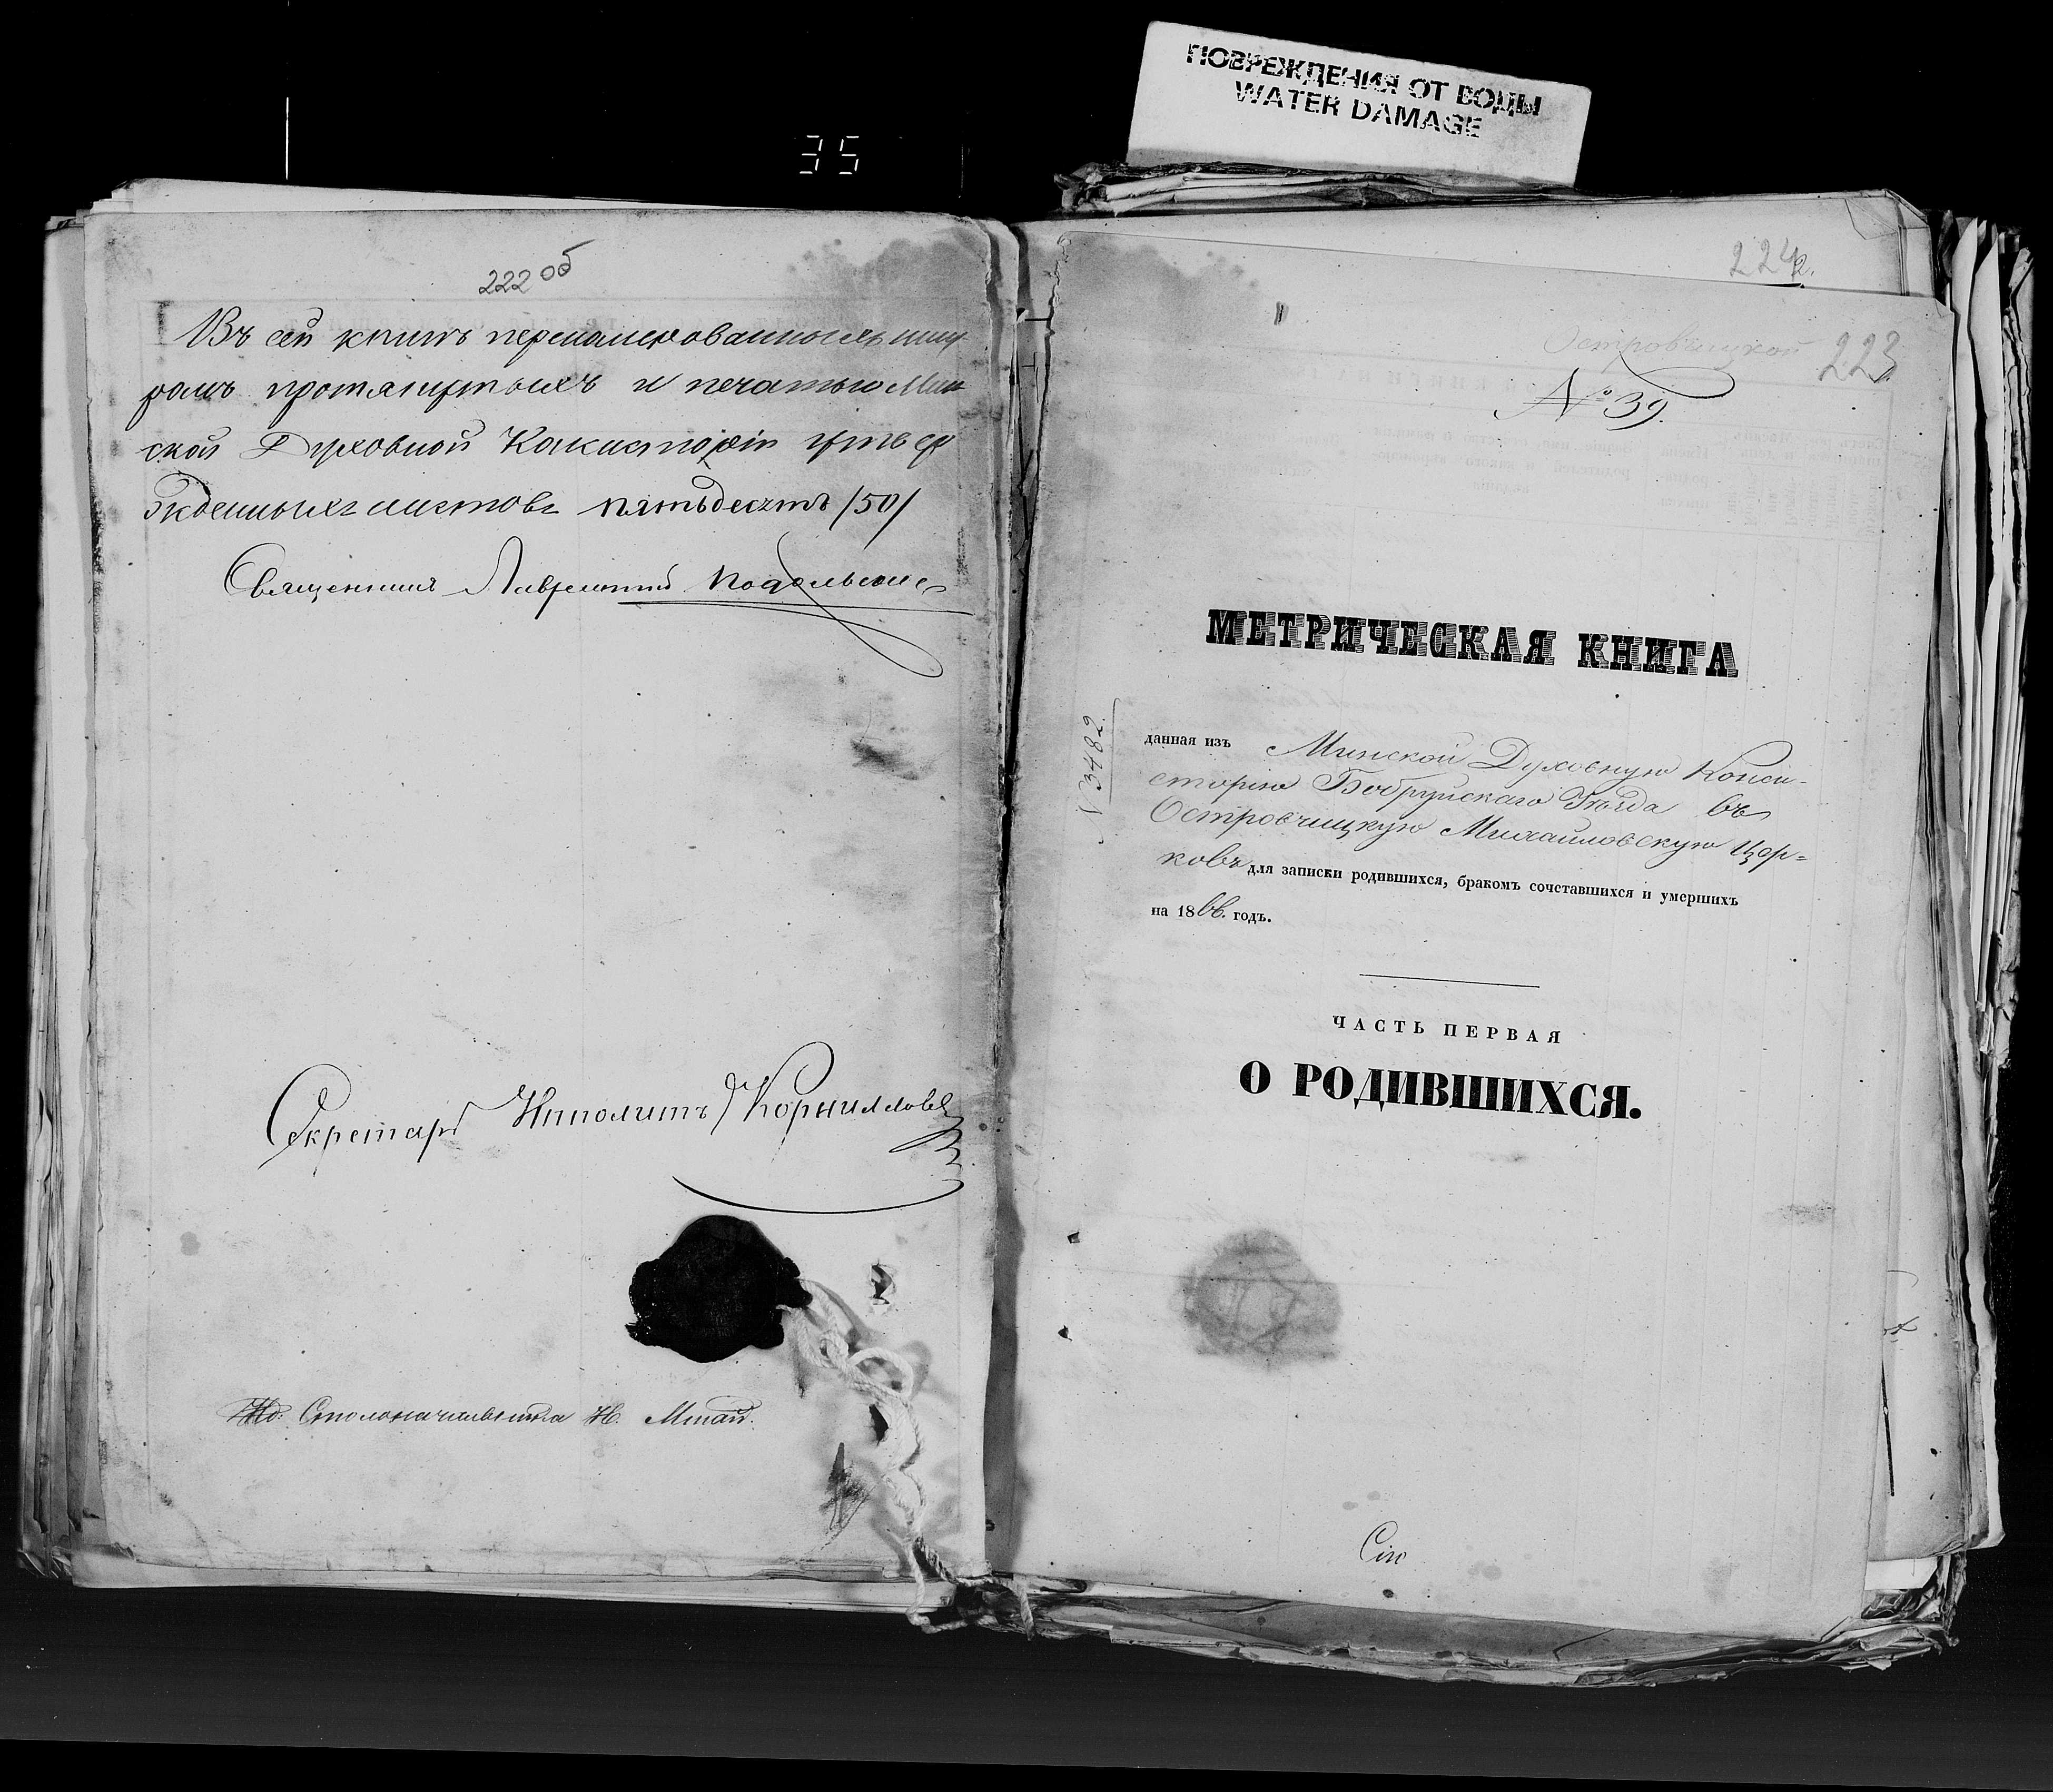 ПОВРЕЖДЕНИЯ ОТ ВОДЫ
WATER DAMAGE
35
222 об
Въ сей книгѣ перенумерованныхъ шну-
ромъ протянутыхъ и печатью Мин
ской Духовной Консисторіи утвер
жденныхъ листовъ пятьдесятъ /50/
Священникъ Лаврентій Подольскій
Секретарь Ипполитъ Корниловъ
Столоначальника Н.
224
Островчицкой
223
№ 39.
МЕТРИЧЕСКАЯ КНИГА
N 3482
данная изъ Минской Духовную Конси-
сторію Бобруйскаго Уѣзда въ
Островчицкую Михайловскую Цер-
ковь для записки родившихся, бракомъ сочетавшихся и умершихъ
на 1866. годъ.
ЧАСТЬ ПЕРВАЯ
О РОДИВШИХСЯ.
Сію